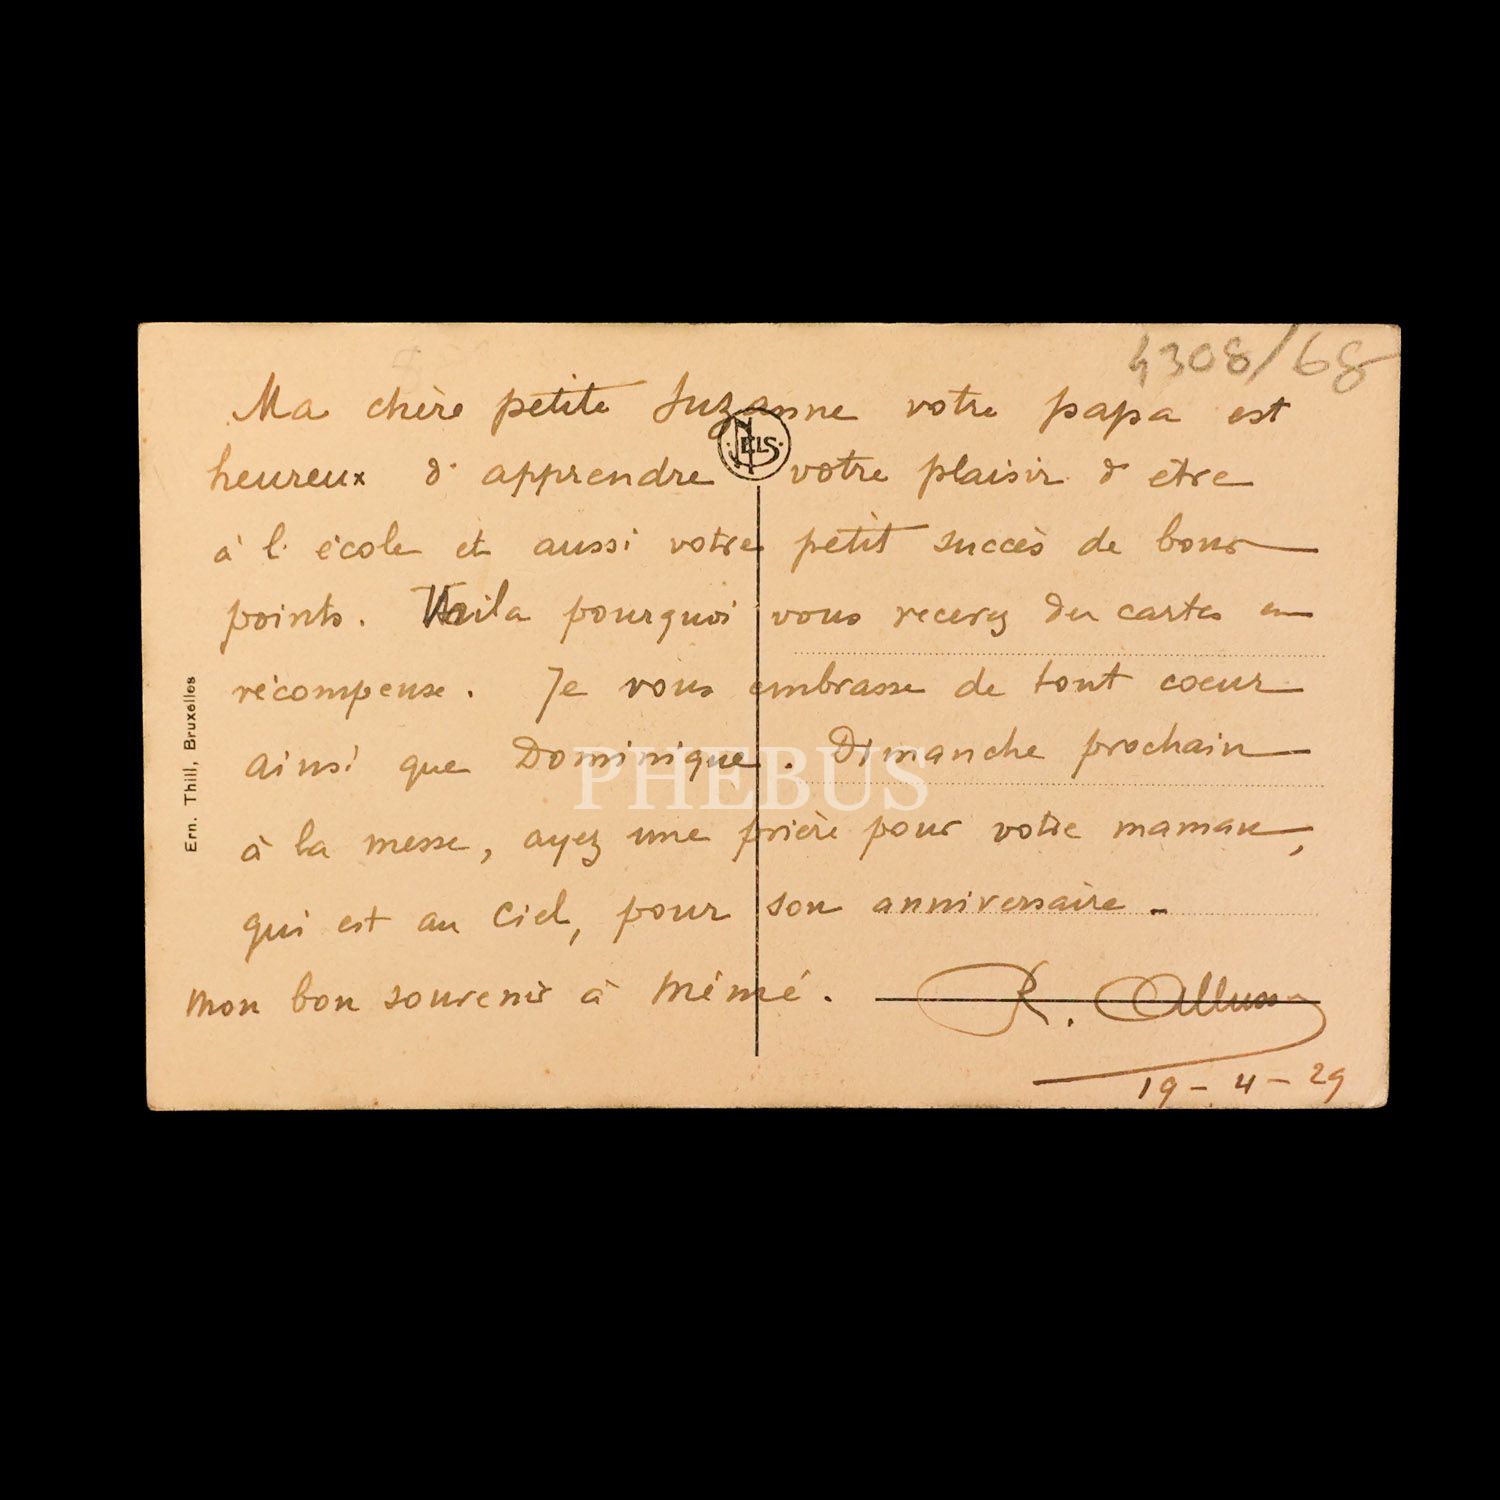 4308/68
Ma chère petite Suzanne votre papa est
NELS
heureux d'apprendre votre plaisir d'etre
à l'école et aussi votre petit succès de bons
points. Voila pourquoi vous recevez des cartes en
récompense. Je vous embrasse de tout coeur
ainsi que Dominique. Dimanche prochain
à la messe, ayez une prière pour votre maman,
qui est au Ciel, pour son anniversaire -
mon bon souvenir à Mémé. R.
19-4-29
Ern. Thill, Bruxelles
PHEBUS